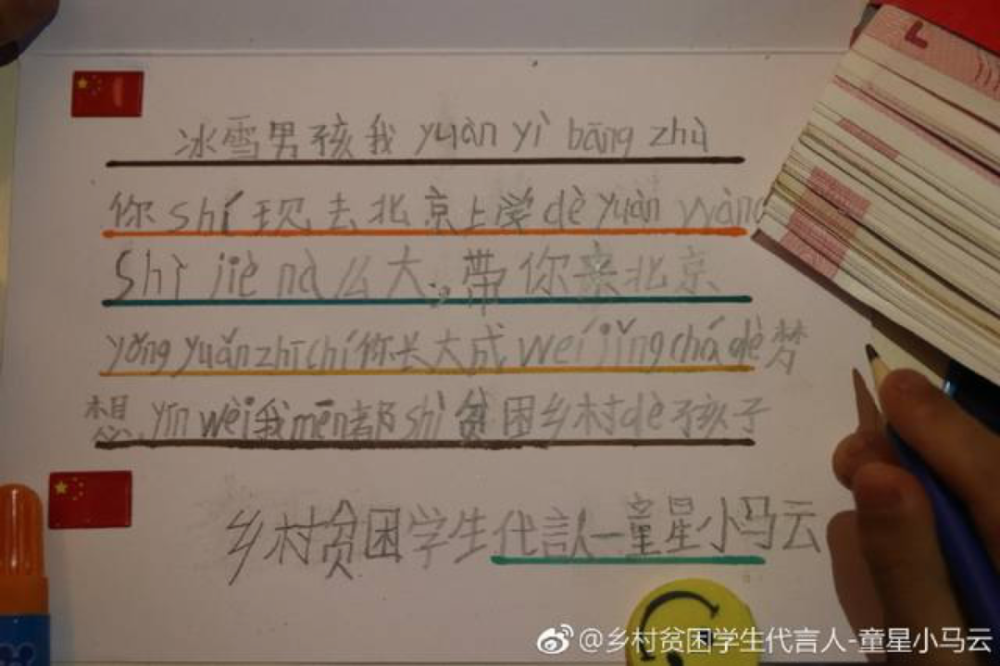 冰雪男孩我 yuàn yì bāng zhù
你 shí 现去北京上学 dè yuàn wàng
Shì jiè nà 么大,带你来北京
yǒng yuǎn zhī chí 你长大成 wéi jǐng chá dè 梦
想, yīn wèi 我 mēn 都 shì 贫困乡村 dè 孩子
乡村贫困学生代言人—童星小马云
@乡村贫困学生代言人-童星小马云